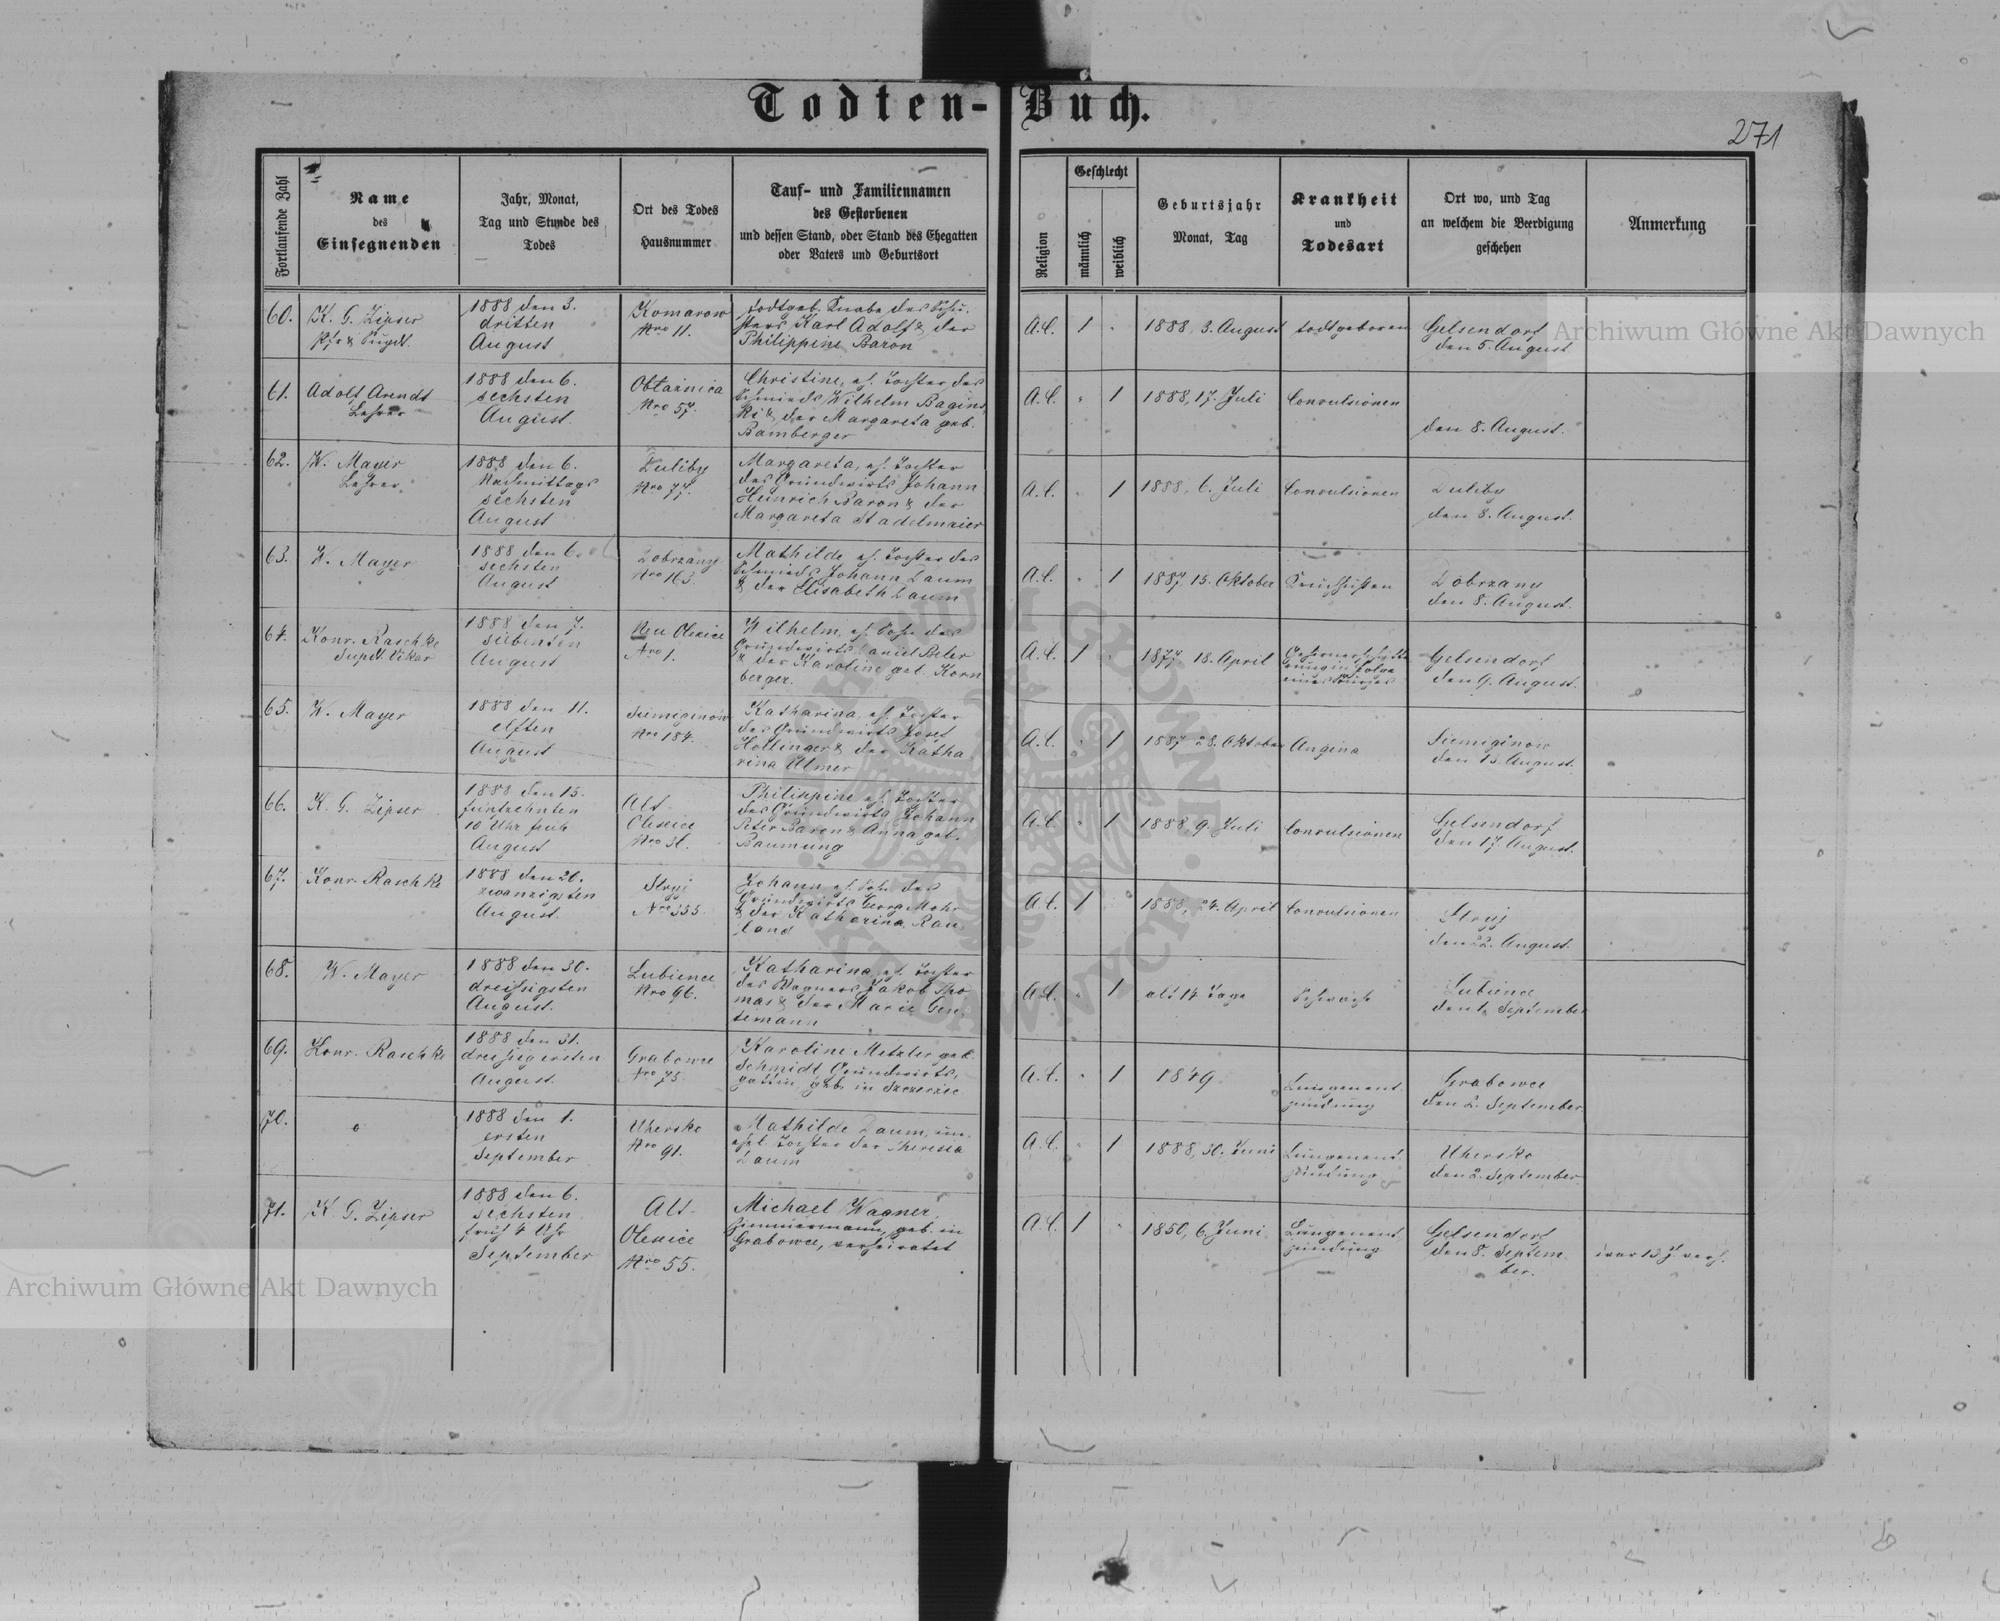 Todten-Buch.
271
Fortlaufende Zahl
Name
des
Einsegnenden
Jahr, Monat,
Tag und Stunde des
Todes
Ort des Todes
Hausnummer
Tauf- und Familiennamen
des Gestorbenen
und dessen Stand, oder Stand des Ehegatten
oder Vaters und Geburtsort
Religion
Geschlecht
männlich
weiblich
Geburtsjahr
Monat, Tag
Krankheit
und
Todesart
Ort wo, und Tag
an welchem die Beerdigung
geschehen
Anmerkung
60.
K. G. Zipser
1888 den 3.
dritten
August
Komarow
Nro 11.
todtgeb. Knabe des Schu-
sters Karl Adolf & der
Philippine Baron
A.C.
1
1888, 3. August
todtgeboren
Gelsendorf
den 5. August
61.
Adolf Arendt
Lehrer
1888 den 6.
sechsten
August.
Obłaźnica
Nro 57.
Christine, eh. Tochter des
Schmieds Wilhelm Bagins-
ki & der Margareta geb.
Bamberger
A.C.
1
1888, 17. Juli
Convulsionen
den 8. August.
62.
W. Mayer
Lehrer
1888 den 6.
Nachmittags
sechsten
August
Duliby
Nro 77.
Margareta, eh. Tochter
des Grundwirts Johann
Heinrich Baron & der
Margareta Stadelmaier
A.C.
1
1888, 6. Juli
Convulsionen
Duliby
den 8. August.
63.
W. Mayer
1888 den 6.
sechsten
August
Dobrzany
Nro 163.
Mathilde eh. Tochter des
Schmieds Johann Daum
& der Elisabeth Daum
A.C.
1
1887, 15. Oktober
Keuchhusten
Dobrzany
den 8. August.
64.
Konr. Raschke
Supdt Vikar
1888 den 7.
siebenten
August
Neu Olexice
Nro 1.
Wilhelm, eh. Sohn des
Grundwirts Daniel Beler
& der Karoline geb. Korn
berger.
A.C.
1
1877, 18. April
Gehirnerschütte
rung in Folge
eines Sturzes
Gelsendorf
den 9. August.
65.
W. Mayer
1888 den 11.
elften
August
Siemiginow
Nro 184.
Katharina, eh. Tochter
des Grundwirts Josef
Hollinger & der Katha
rina Ulmer
A.C.
1
1887 28. Oktober
Angina
Siemiginow
den 13. August.
66.
K. G. Zipser
1888 den 15.
fünfzehnten
10 Uhr früh
August
Alt-
Olexice
Philippine eh. Tochter
des Grundwirts Johann
Peter Baron & Anna geb.
Baumung
A.C.
1
1888, 9. Juli
Convulsionen
Gelsendorf
den 17. August.
67.
Konr. Raschke
1888 den 20.
zwanzigsten
August.
Stryj
Nro 355.
Johann eh. Sohn des
Grundwirts Georg Mohr
& der Katharina Rau
land
A.C.
1
1888, 24. April
Convulsionen
Stryj
den 22. August.
68.
W. Mayer
1888 den 30.
dreißigsten
August.
Lubience
Nro 96.
Katharina, eh. Tochter
des Wagners Jakob Tho
mas & der Marie Gen
temann
A.C.
1
alt 14 Tage
Schwäche
Lubience
den 1. September
69.
Konr. Raschke
1888 den 31.
dreißigersten
August.
Grabowce
Nro 75.
Karoline Metzler geb.
Schmidt Grundwirts,
gattin, geb. in Szczerzec
A.C.
1
1849
Lungenent
zündung
Grabowce
den 2. September
70.
1888 den 1.
ersten
September
Uhersko
Nro 91.
Mathilde Daum, un-
ehel. Tochter der Theresia
Daum
A.C.
1
1888, 30. Juni
Lungenent
zündung
Uhersko
den 2. September
71.
K. G. Zipser
1888 den 6.
sechsten
früh 4 Uhr
September
Alt-
Olexice
Nro 55.
Michael Wagner,
Zimmermann, geb. in
Grabowce, verheiratet
A.C.
1
1850, 6. Juni
Lungenent
zündung
Gelsendorf
den 8. Septem-
ber.
war 13 J. verh.
Archiwum Główne Akt Dawnych
Archiwum Główne Akt Dawnych
ARCHIWUM GŁÓWNE AKT DAWNYCH